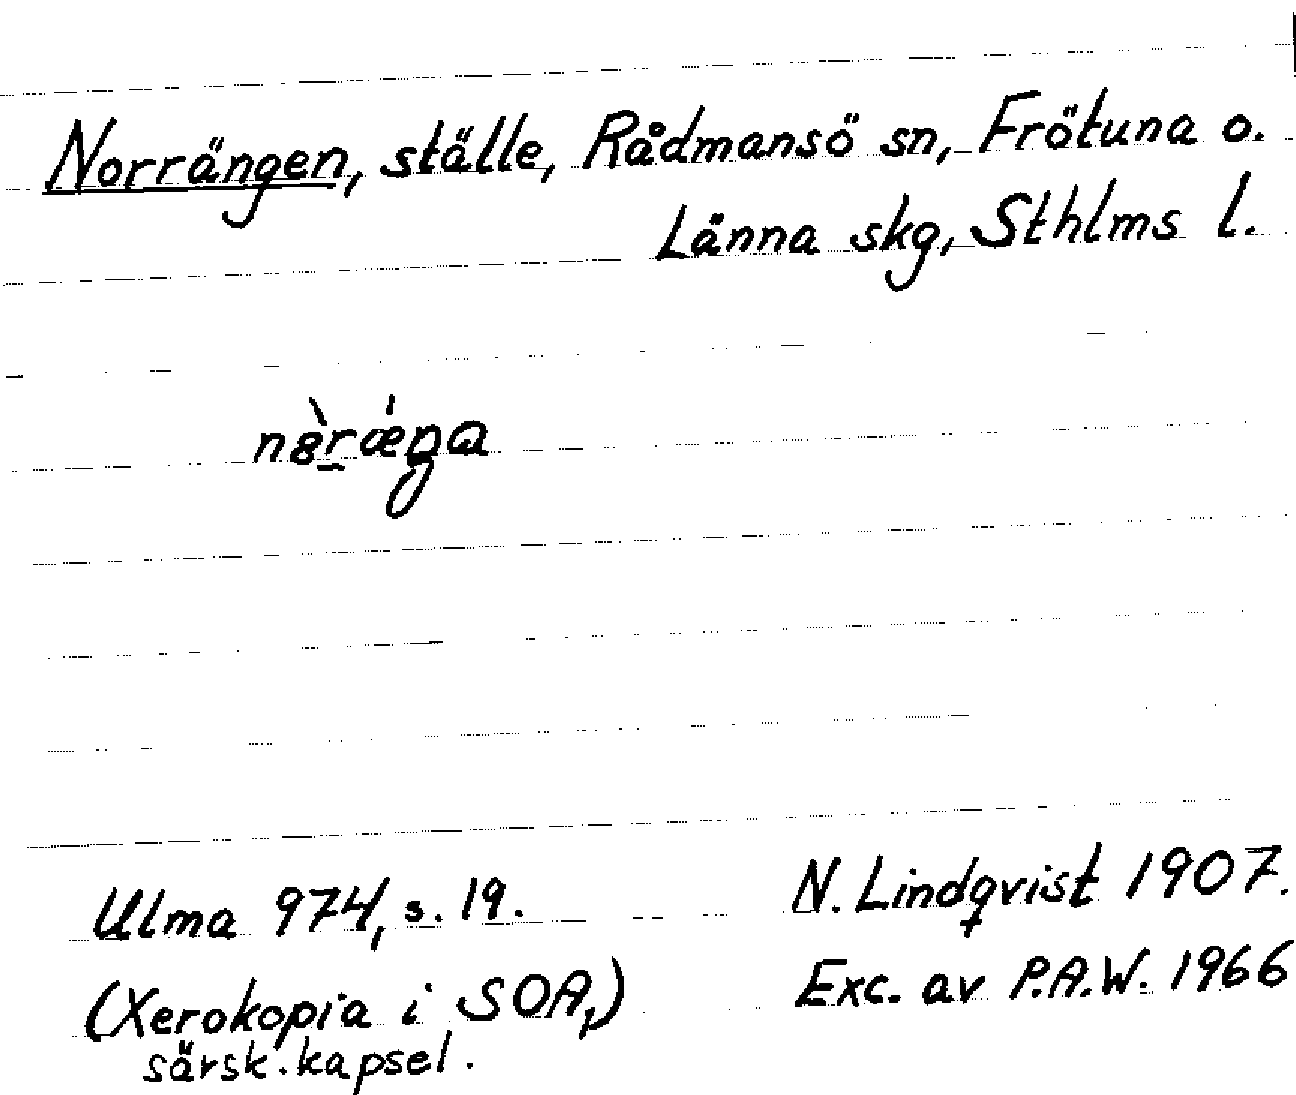 Norrängen, ställe, Rådmansö sn, Frötuna o.
Länna skg, Sthlms l.
Ulma 974, s. 19.
N. Lindqvist 1907.
(Xerokopia i SOA,)
särsk. kapsel.
Exc. av P.A.W. 1966